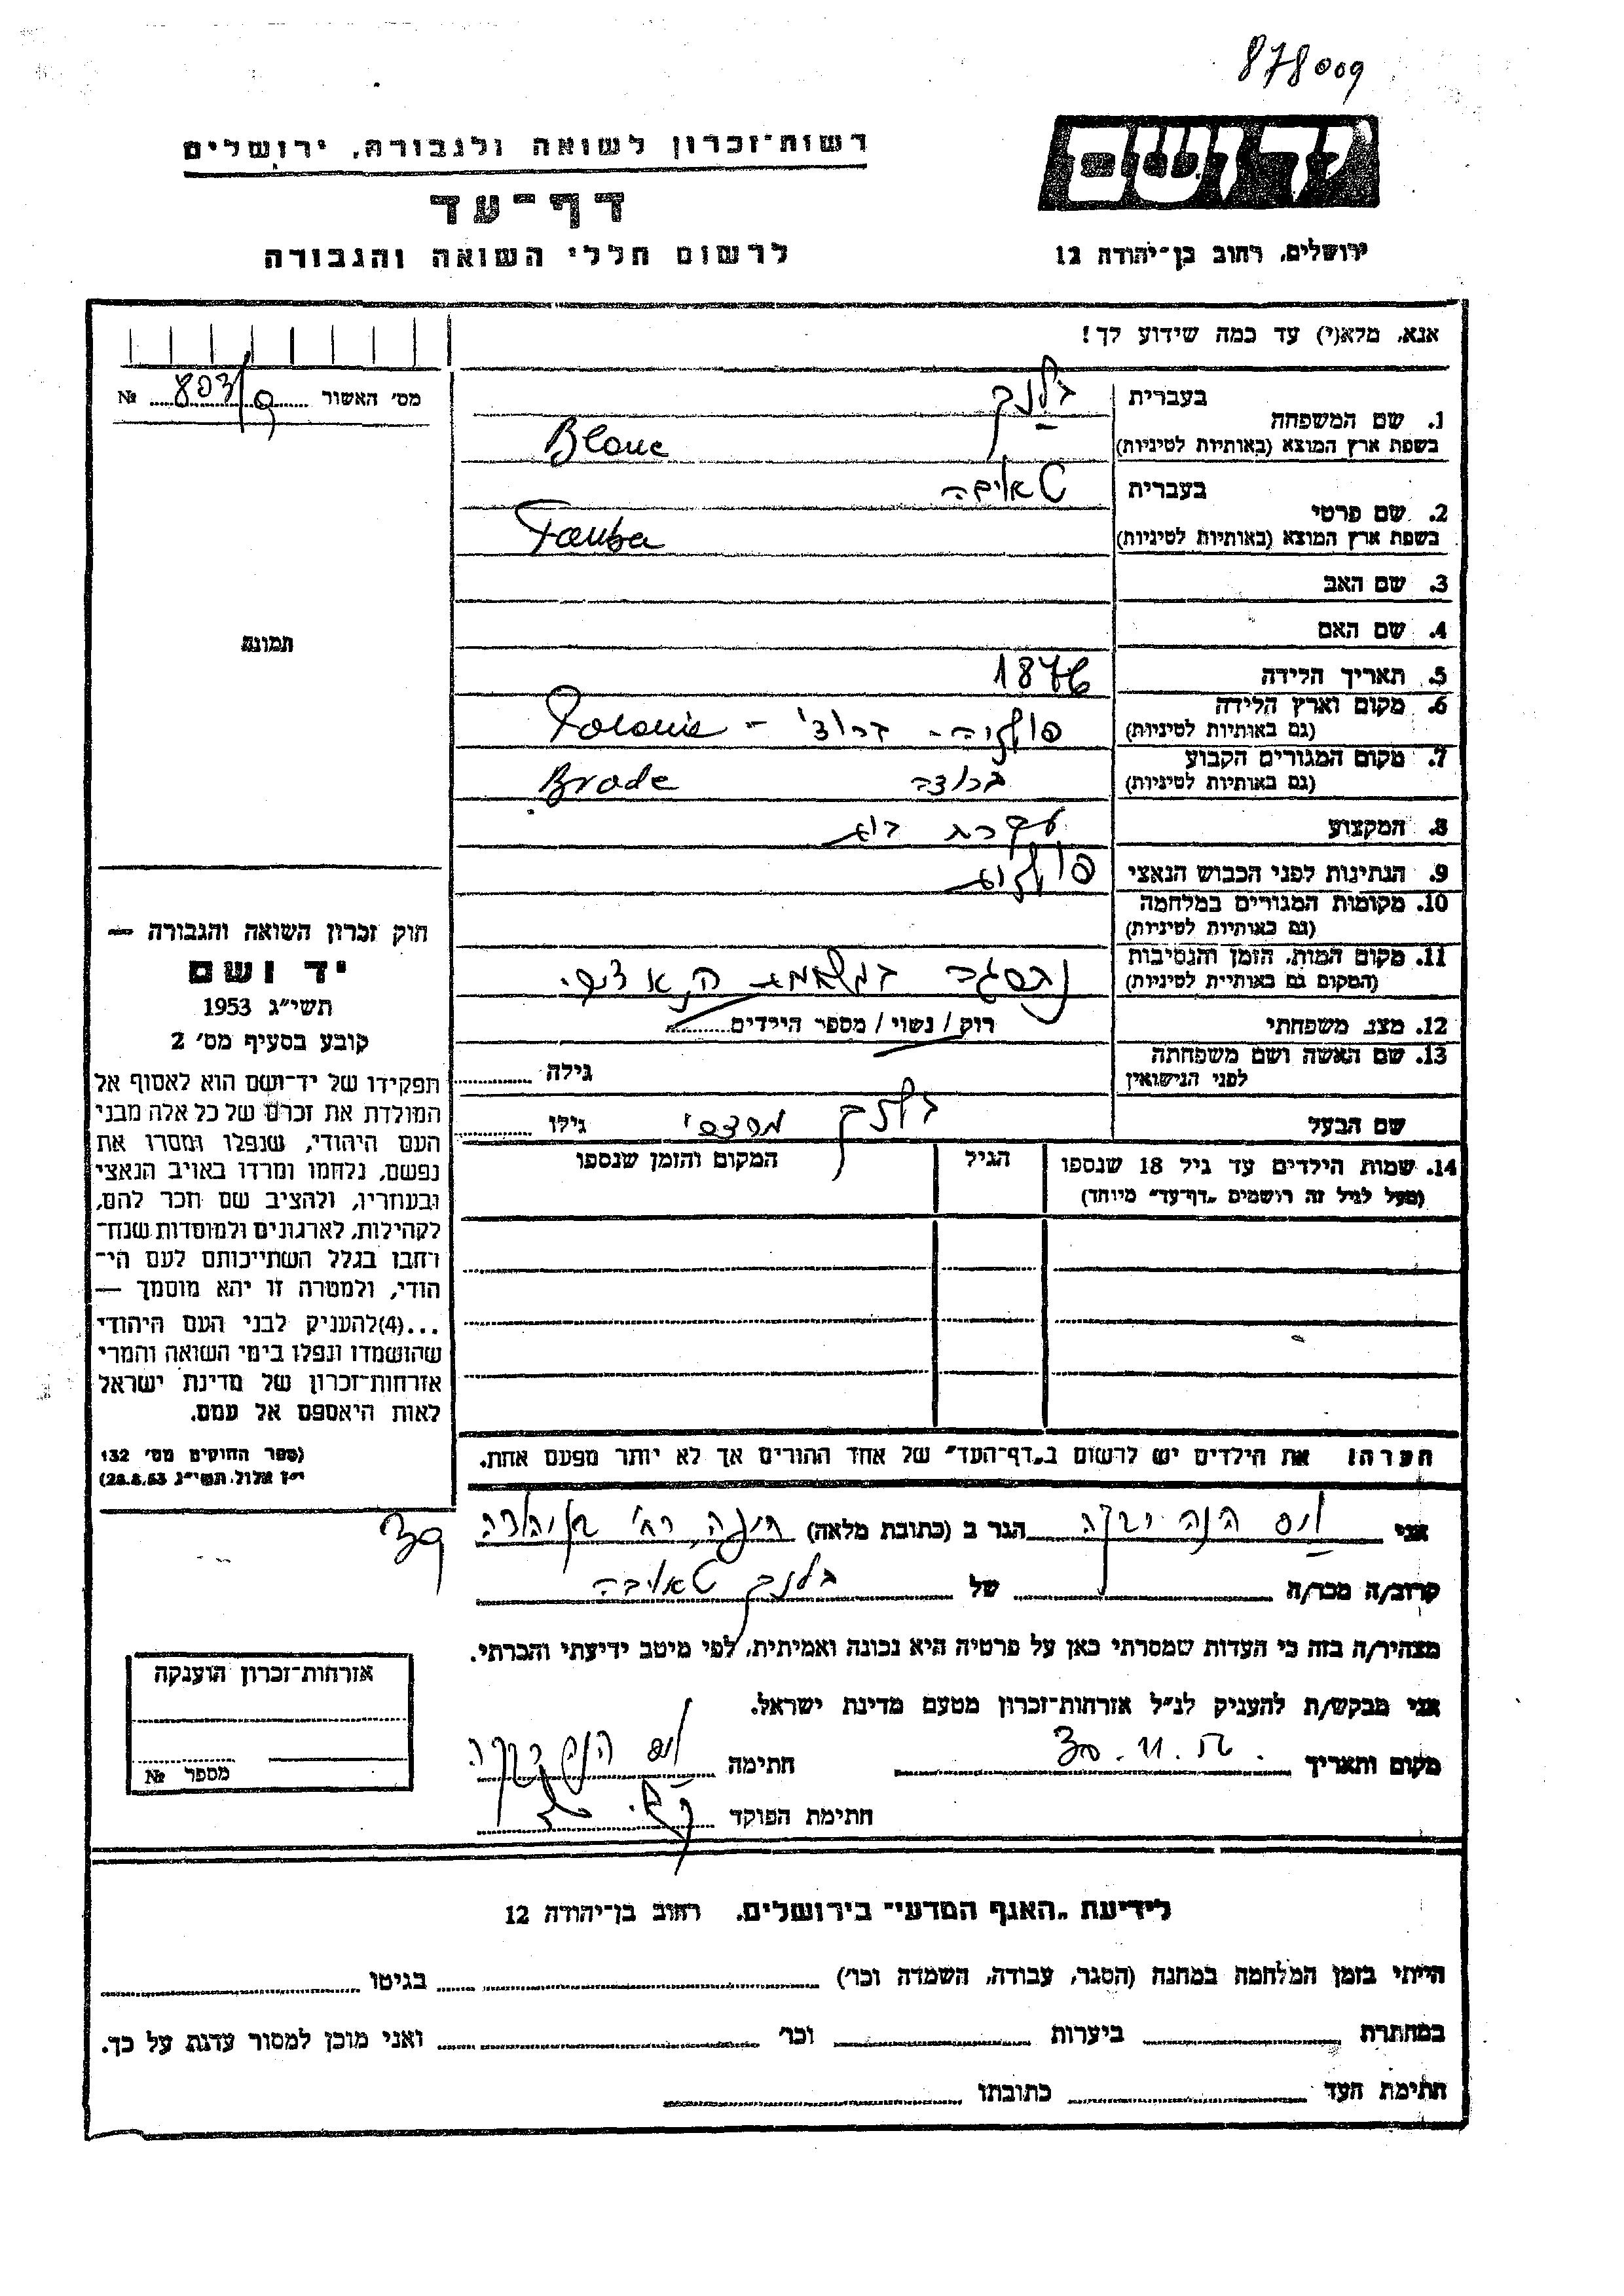 878009
רשות־זכרון לשואה ולגבורה, ירושלים
יד ושם
דף־עד
לרשום חללי השואה והגבורה
ירושלים, רחוב בן־יהודה 12
אנא, מלא(י) עד כמה שידוע לך!
מס׳ האשור 803/9 №
בעברית בלנק
1. שם המשפחה
בשפת ארץ המוצא (באותיות לטיניות) Blanc
בעברית טאובה
2. שם פרטי
בשפת ארץ המוצא (באותיות לטיניות) Tauba
3. שם האב
4. שם האם
תמונה
5. תאריך הלידה 1876
6. מקום וארץ הלידה
(גם באותיות לטיניות) פולניה - Polonie -
7. מקום המגורים הקבוע
(גם באותיות לטיניות) Brode
8. המקצוע עקרת בית
9. הנתינות לפני הכבוש הנאצי פולנית
10. מקומות המגורים במלחמה
(גם באותיות לטיניות)
11. מקום המות, הזמן והנסיבות
(המקום גם באותיות לטיניות) נספתה
12. מצב משפחתי רוק / נשוי / מספר הילדים
13. שם האשה ושם משפחתה
לפני הנישואין גילה
שם הבעל בלנק גילו
14. שמות הילדים עד גיל 18 שנספו הגיל המקום והזמן שנספו
(מעל לגיל זה רושמים „דף־עד״ מיוחד)
חוק זכרון השואה והגבורה —
יד ושם
תשי״ג 1953
קובע בסעיף מס׳ 2
תפקידו של יד־ושם הוא לאסוף אל
המולדת את זכרם של כל אלה מבני
העם היהודי, שנפלו ומסרו את
נפשם, נלחמו ומרדו באויב הנאצי
ובעוזריו, ולהציב שם וזכר להם,
לקהילות, לארגונים ולמוסדות שנח־
רחבו בגלל השתייכותם לעם הי־
הודי, ולמטרה זו יהא מוסמך —
...(4)להעניק לבני העם היהודי
שהושמדו ונפלו בימי השואה והמרי
אזרחות־זכרון של מדינת ישראל
לאות היאספם אל עמם.
(ספר החוקים מס׳ 132
י״ז אלול תשי״ג 28.8.53)
הערה! את הילדים יש לרשום ב„דף־העד״ של אחד ההורים אך לא יותר מפעם אחת.
אני הגר ב (כתובת מלאה) חיפה, רח׳ 39
קרוב/ה מכר/ה של בלנק טאובה
מצהיר/ה בזה כי העדות שמסרתי כאן על פרטיה היא נכונה ואמיתית, לפי מיטב ידיעתי והכרתי.
אני מבקש/ת להעניק לנ״ל אזרחות־זכרון מטעם מדינת ישראל.
מקום ותאריך 30.11. חתימה
חתימת הפוקד
אזרחות־זכרון הוענקה
מספר №
לידיעת „האגף המדעי״ בירושלים, רחוב בן־יהודה 12
הייתי בזמן המלחמה במחנה (הסגר, עבודה, השמדה וכו׳) בגיטו
במחתרת ביערות וכו׳ ואני מוכן למסור עדות על כך.
חתימת העד כתובתו